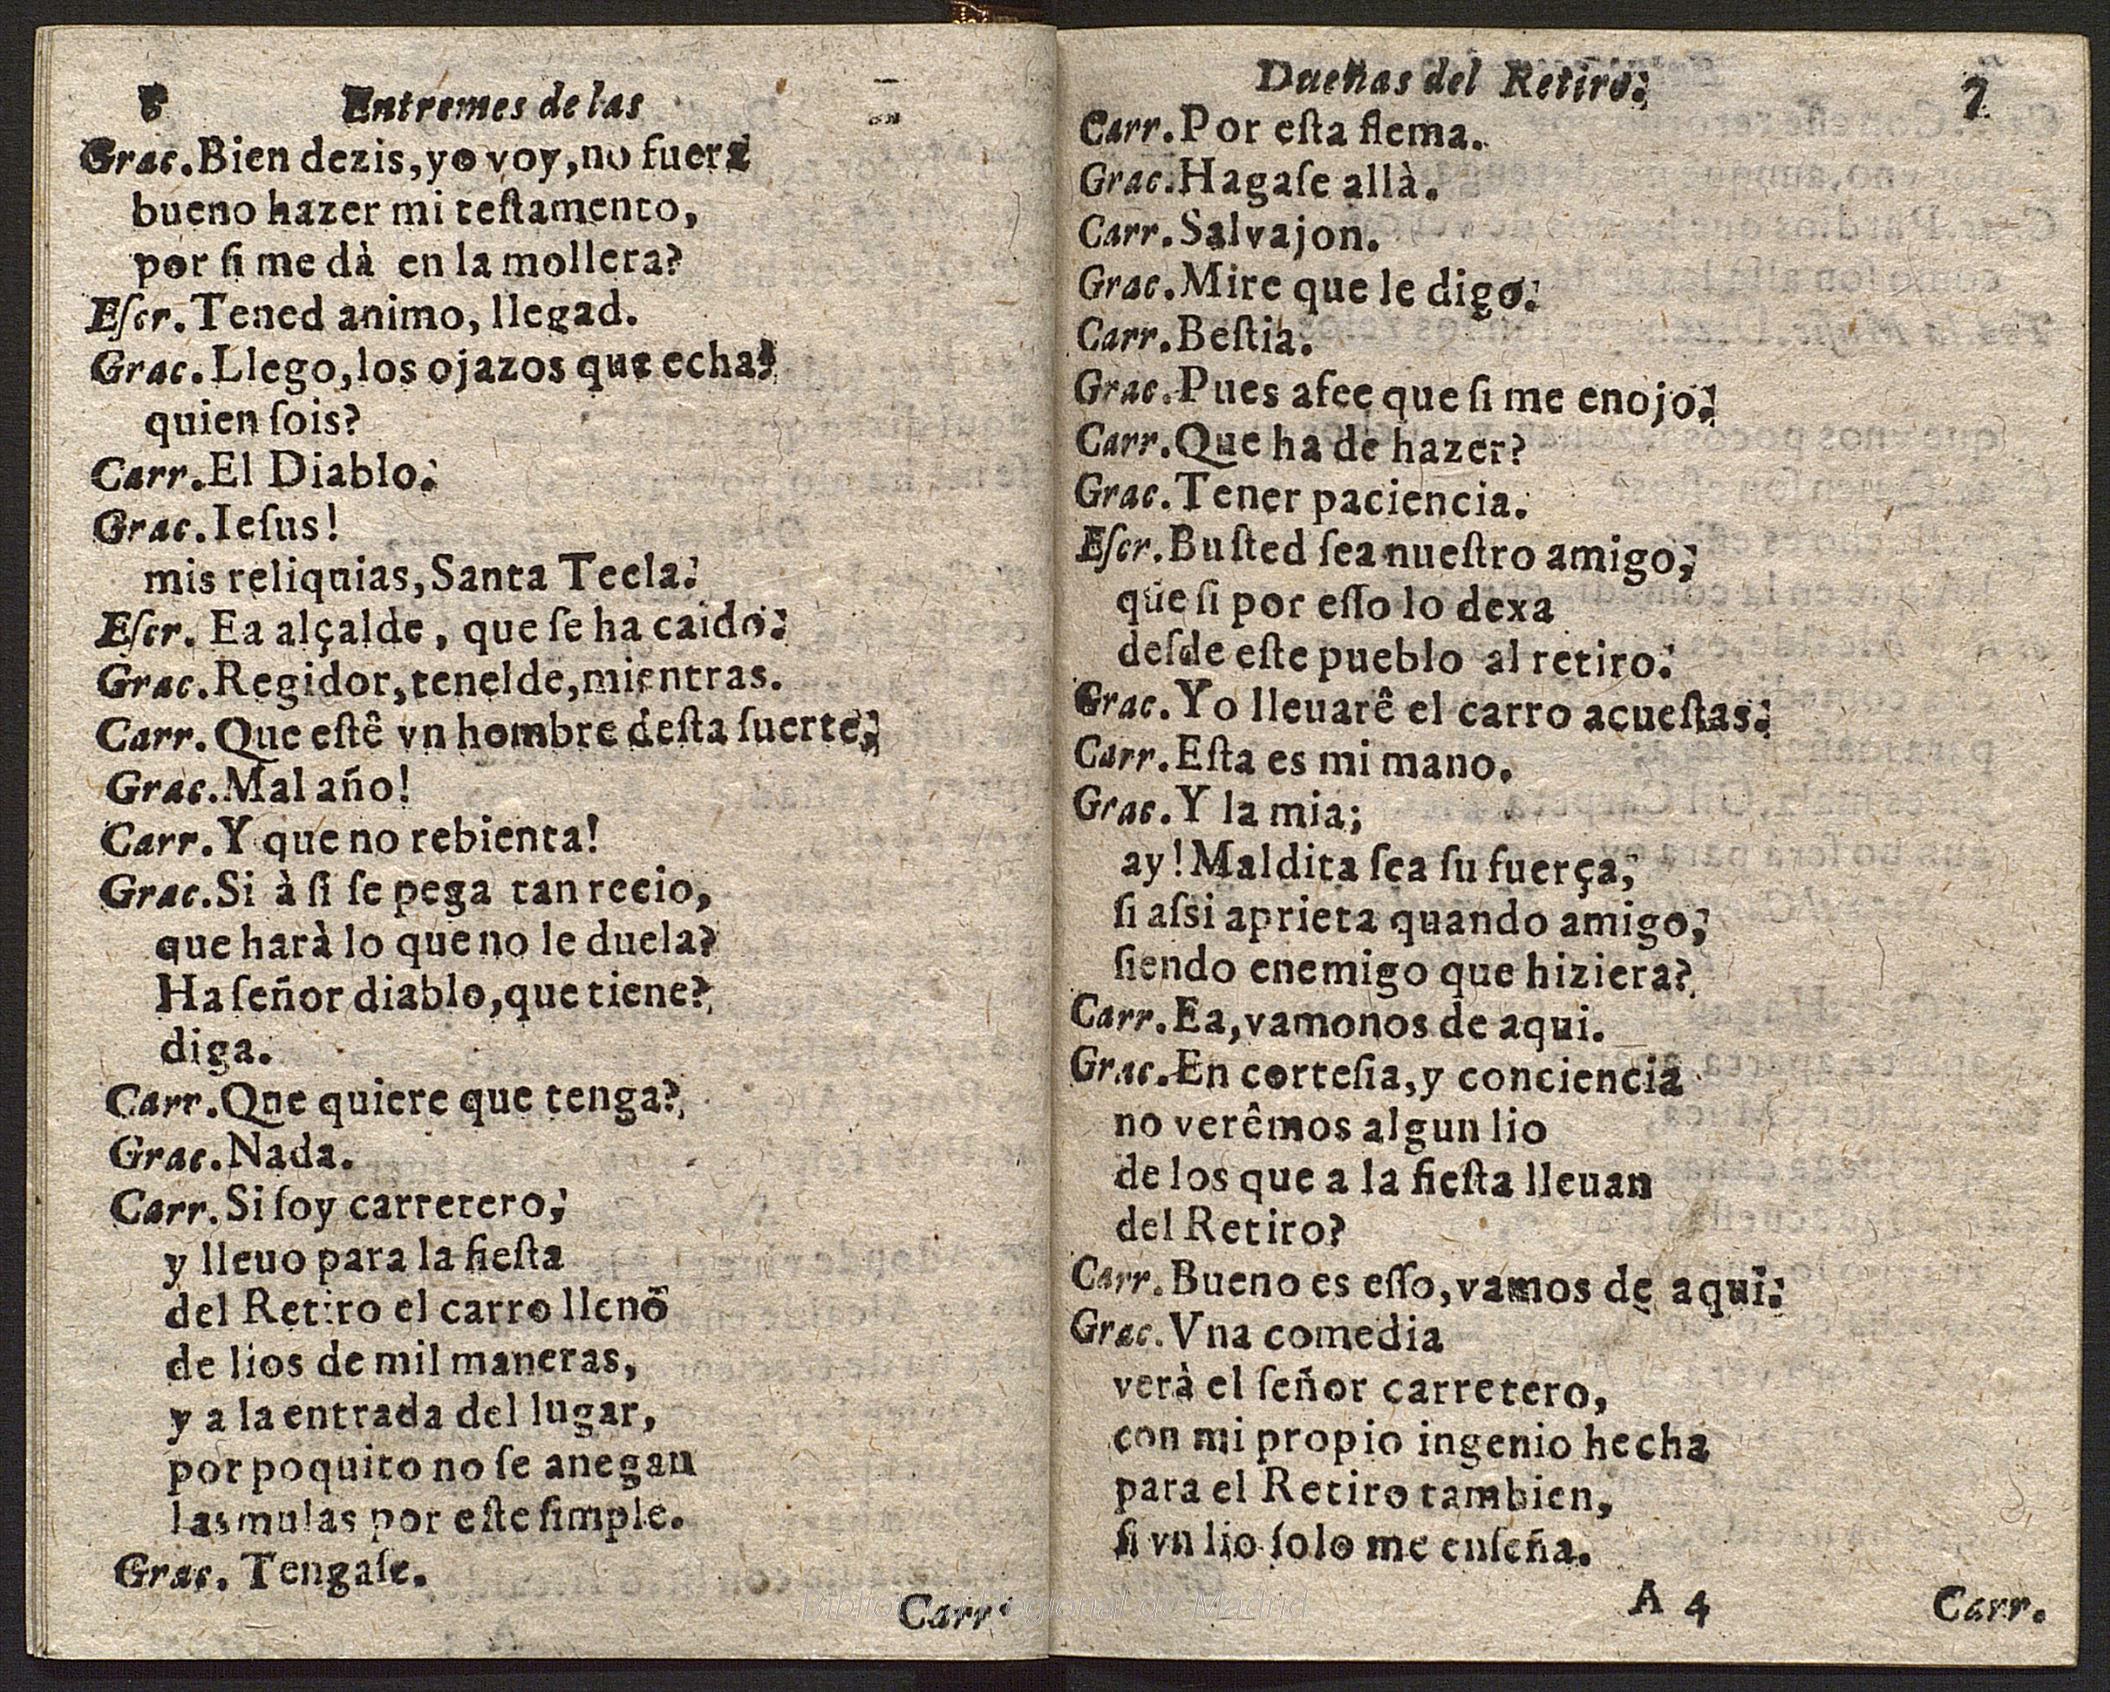 6 Entremes de las
Grac. Bien dezis, yo voy, no fuera
bueno hazer mi testamento,
por si me dà en la mollera?
Eſcr. Tened animo, llegad.
Grac. Llego, los ojazos que echa!
quien ſois?
Carr. El Diablo.
Grac. Ieſus!
mis reliquias, Santa Tecla.
Eſcr. Ea alçalde, que ſe ha caido.
Grac. Regidor, tenelde, mientras.
Carr. Que eſtê vn hombre deſta ſuerte,
Grac. Mal año!
Carr. Y que no rebienta!
Grac. Si à ſi ſe pega tan recio,
que harà lo que no le duela?
Ha ſeñor diablo, que tiene?
diga.
Carr. Que quiere que tenga?
Grac. Nada.
Carr. Si ſoy carretero,
y lleuo para la fieſta
del Retiro el carro lleno
de lios de mil maneras,
y a la entrada del lugar,
por poquito no ſe anegan
las mulas por eſte ſimple.
Grac. Tengaſe.
Carr.
Dueñas del Retiro. 7
Carr. Por eſta flema.
Grac. Hagaſe allà.
Carr. Salvajon.
Grac. Mire que le digo.
Carr. Beſtia.
Grac. Pues afee que ſi me enojo.
Carr. Que ha de hazer?
Grac. Tener paciencia.
Eſcr. Buſted ſea nueſtro amigo,
que ſi por eſſo lo dexa
deſde eſte pueblo al retiro.
Grac. Yo lleuarê el carro acueſtas.
Carr. Eſta es mi mano.
Grac. Y la mia;
ay! Maldita ſea ſu fuerça,
ſi aſsi aprieta quando amigo,
ſiendo enemigo que hiziera?
Carr. Ea, vamonos de aqui.
Grac. En corteſia, y conciencia
no verêmos algun lio
de los que a la fieſta lleuan
del Retiro?
Carr. Bueno es eſſo, vamos de aqui.
Grac. Vna comedia
verà el ſeñor carretero,
con mi propio ingenio hecha
para el Retiro tambien,
ſi vn lio ſolo me enſeña.
A 4 Carr.
Biblioteca Regional de Madrid